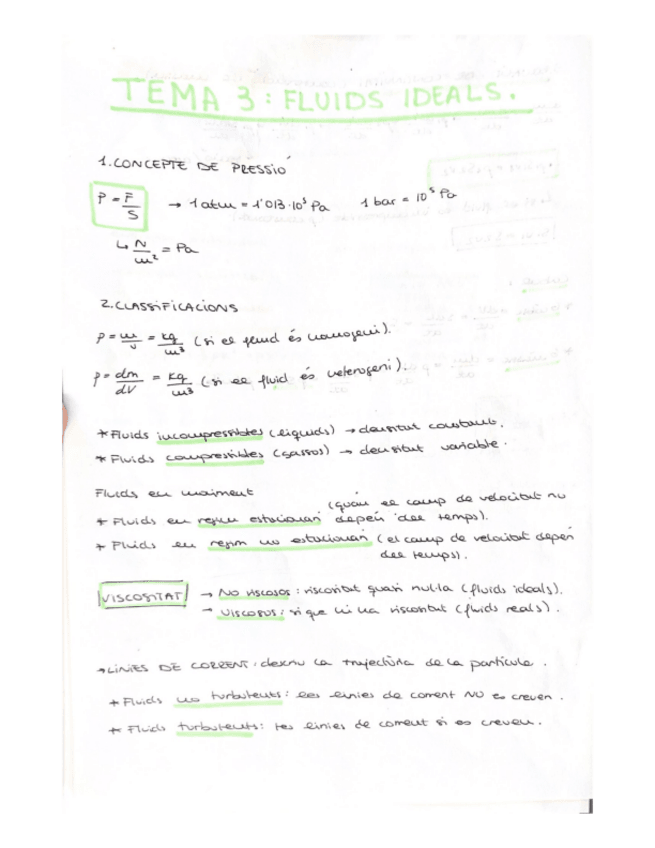 TEMA 3: FLUIDS IDEALS.
1. CONCEPTE DE PRESSIÓ
P = F/S → 1 atm = 1'013·10⁵ Pa 1 bar = 10⁵ Pa
↳ N/m² = Pa
2. CLASSIFICACIONS
ρ = m/v = kg/m³ (si el fluid és homogeni).
ρ = dm/dV = kg/m³ (si el fluid és heterogeni).
* Fluids incompressibles (líquids) → densitat constant.
* Fluids compressibles (gassos) → densitat variable.
Fluids en moviment
* Fluids en regim estacionari (quan el camp de velocitat no
depèn del temps).
* Fluids en regim no estacionari (el camp de velocitat depèn
del temps).
VISCOSITAT → No viscosos: viscositat quasi nul·la (fluids ideals).
→ Viscosos: si que hi ha viscositat (fluids reals).
→ LÍNIES DE CORRENT: descriu la trajectòria de la partícula.
* Fluids no turbulents: les línies de corrent NO es creuen.
* Fluids turbulents: les línies de corrent si es creuen.